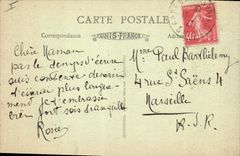 CARTE POSTALE
Correspondance
UNIS-FRANCE
Chère Maman
pas le temps d'écrire
suis contente demain
d'écrire plus longue
ment je t'embrasse
sois tranquille
Rosée
Mme Paul Barthélemy
4 rue St Saëns 4
Marseille
B.d.R.